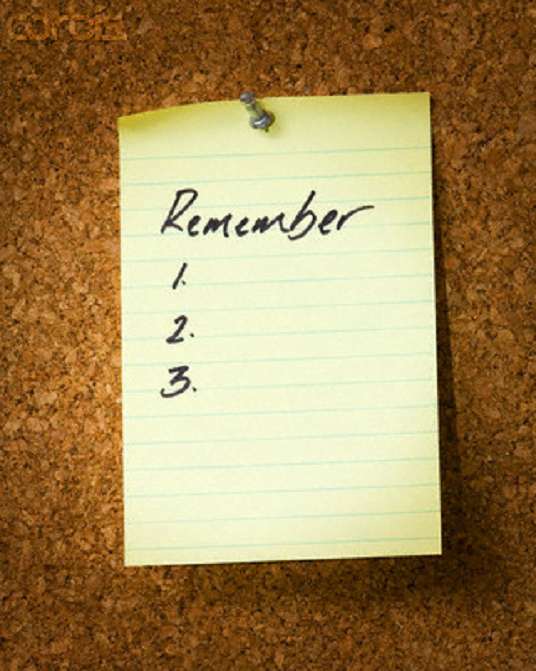 corbis
Remember
1.
2.
3.